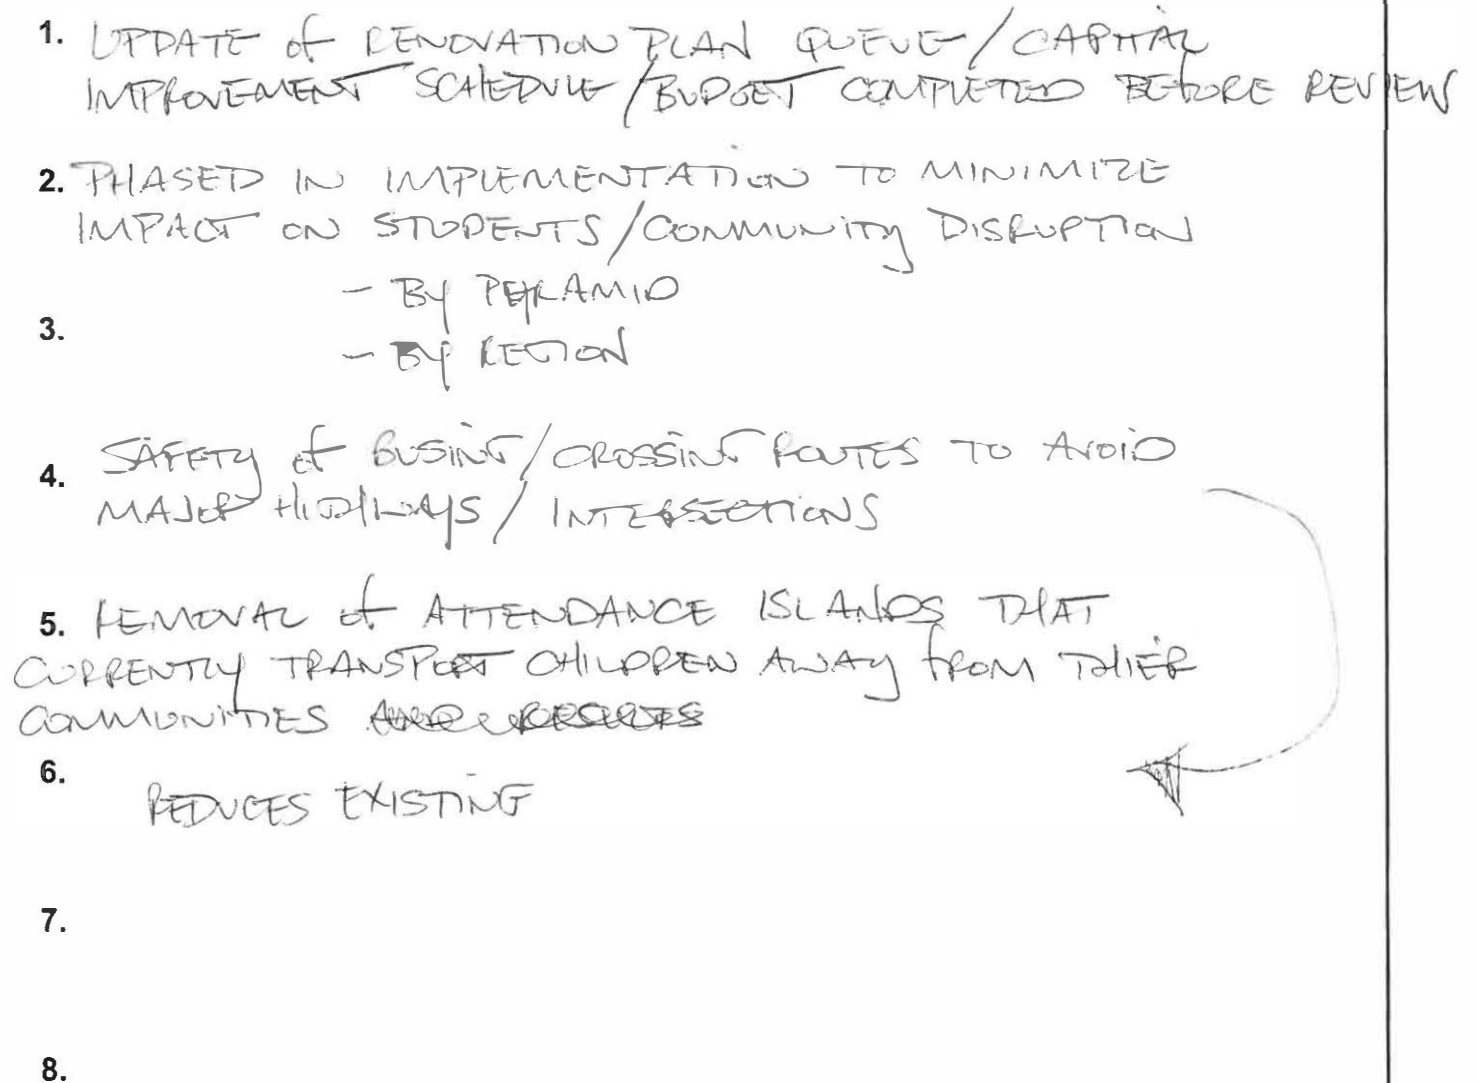 1. UPDATE of RENOVATION PLAN QUEUE / CAPITAL
IMPROVEMENT SCHEDULE / BUDGET COMPLETED BEFORE REVIEW
2. PHASED IN IMPLEMENTATION TO MINIMIZE
IMPACT ON STUDENTS / COMMUNITY DISRUPTION
- By PERAMID
3.
- By REGION
SAFETY of BUSING / CROSSING ROUTES TO AVOID
4.
MAJOR HIGHWAYS / INTERSECTIONS
5. REMOVAL of ATTENDANCE ISLANDS THAT
CURRENTLY TRANSPORT CHILDREN AWAY FROM THIER
COMMUNITIES
6.
REDUCES EXISTING
7.
8.